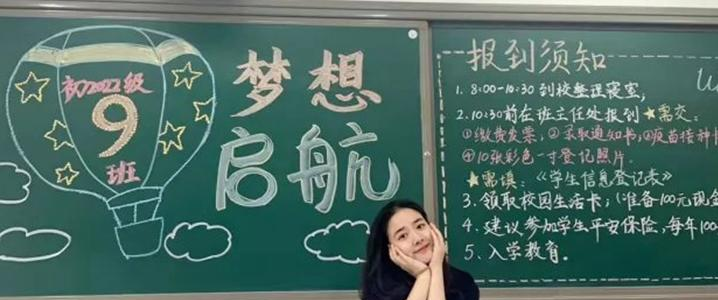 初2022级
9
班
梦想
启航
报到须知
1. 8:00-10:30 到校整理寝室;
2. 10:30前在班主任处报到 ★需交:
①缴费发票,②录取通知书,③疫苗接种
④10张彩色一寸登记照片.
★需填:《学生信息登记表》
3. 领取校园生活卡;(准备100元现金
4. 建议参加学生平安保险,每年100
5. 入学教育.